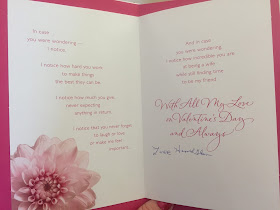 In case
you were wondering . . .
I notice.
I notice how hard you work
to make things
the best they can be.
I notice how much you give,
never expecting
anything in return.
I notice that you never forget
to laugh or love
or make me feel
important...
And in case
you were wondering
I notice how incredible you are
at being a wife
while still finding time
to be my friend.
With All My Love
on Valentine's Day
and Always